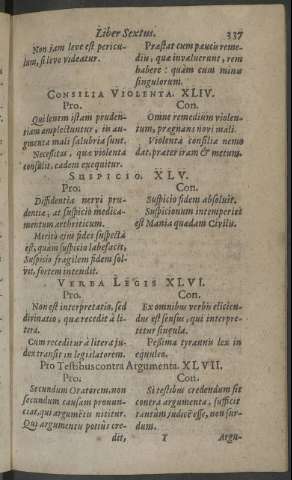 Liber Sextus.
337
Non jam leve est pericu-
lum, si leve videatur.
Præstat cum paucis reme-
diu, quæ invaluerunt, rem
habere: quàm cum minis
singulorum.
CONSILIA VIOLENTA. XLIV.
Pro.
Qui lenem istam pruden-
tiam amplectuntur, in au-
gmenta mali salubria sunt.
Necessitas, quæ violenta
consulit, eadem exequitur.
Con.
Omne remedium violen-
tum, prægnans novi mali.
Violenta consilia nemo
dat, præter iram & metum.
SUSPICIO. XLV.
Pro.
Diffidentia nervi pru-
dentiæ, at suspicio medica-
mentum arthriticum.
Meritò ejus fides suspecta
est, quàm suspicio labefacit,
Suspicio fragilem fidem sol-
vit, fortem intendit.
Con.
Suspicio fidem absolvit.
Suspicionum intemperies
est Mania quædam Civilis.
VERBA LEGIS XLVI.
Pro.
Non est interpretatio, sed
divinatio, quæ recedit à li-
tera.
Cum receditur à litera ju-
dex transit in legislatorem.
Con.
Ex omnibus verbis elicien-
dus est sensus, qui interpre-
titur singula.
Pessima tyrannis lex in
equuleo.
Pro Testibus contra Argumenta. XLVII.
Pro.
Secundum Oratorem, non
secundum causam pronun-
ciat, qui argumētis nititur.
Qui argumentis potiùs cre-
dit,
Con.
Si testibus credendum sit
contra argumenta, sufficit
tantùm, judicē esse, non sur-
dum.
Y
Argu-